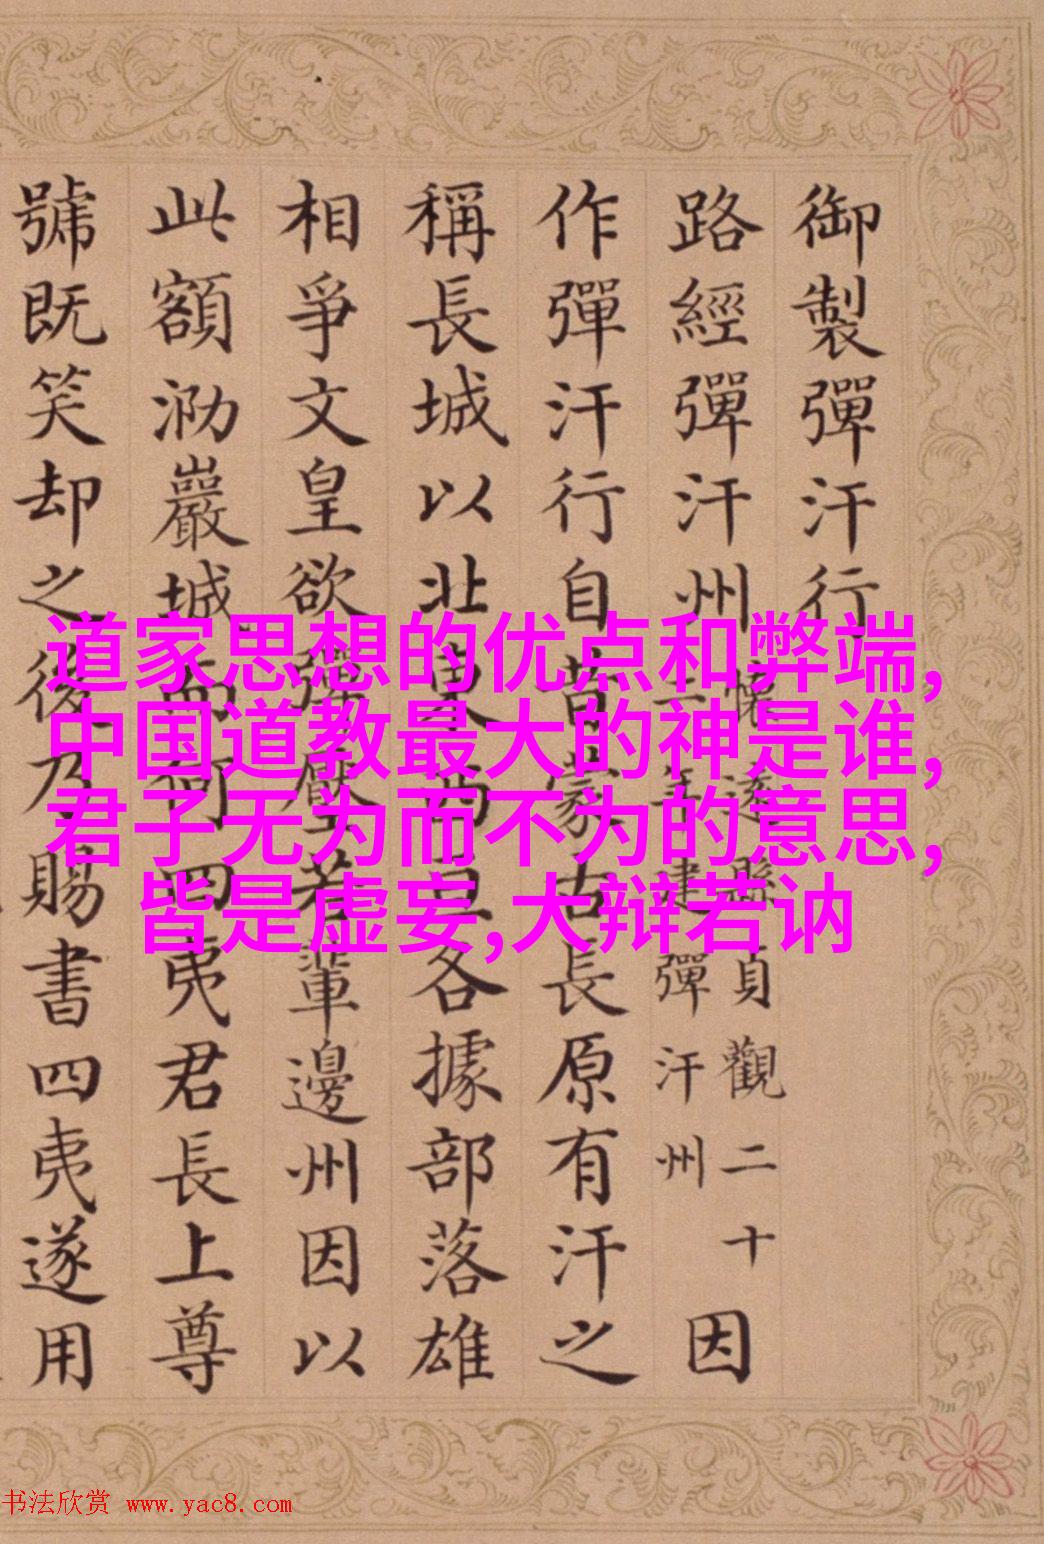 御製彈汗行
路經彈汗州
懷遠縣貞觀二十
三年建彈汗州
因
作彈汗行自昔蒙古長原有汗之
稱長城以北東西亘各據部落雄
相爭文皇欲彈壓若輩邊州因以
此額泐巖城何四夷君長上尊
號既笑却之後乃賜書四夷遂用
道家思想的优点和弊端,
中国道教最大的神是谁,
君子无为而不为的意思,
皆是虚妄,大辩若讷
书法欣赏 www.yac8.com